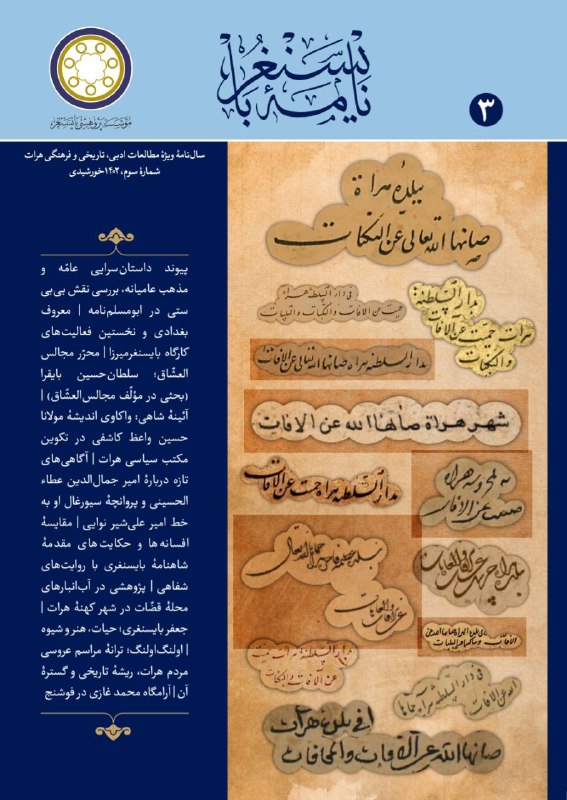 نامهٔ بایسنغر
۳
مؤسسه پژوهشی بایسنغر
سال‌نامهٔ ویژهٔ مطالعات ادبی، تاریخی و فرهنگی هرات
شمارهٔ سوم، ۱۴۰۲ خورشیدی
پیوند داستان‌سرایی عامّه و
مذهب عامیانه، بررسی نقش بی‌بی
ستی در ابومسلم‌نامه | معروف
بغدادی و نخستین فعالیت‌های
کارگاه بایسنغرمیرزا | محرّر مجالس
العشّاق؛ سلطان‌حسین بایقرا
(بحثی در مؤلّف مجالس‌العشّاق) |
آئینهٔ شاهی؛ واکاوی اندیشهٔ مولانا
حسین واعظ کاشفی در تکوین
مکتب سیاسی هرات | آگاهی‌های
تازه دربارهٔ امیر جمال‌الدین عطاء
الحسینی و پروانچهٔ سیورغال او به
خط امیر علی‌شیر نوایی | مقایسهٔ
افسانه‌ها و حکایت‌های مقدمهٔ
شاهنامهٔ بایسنغری با روایت‌های
شفاهی | پژوهشی در آب‌انبارهای
محلهٔ قضّات در شهر کهنهٔ هرات |
جعفر بایسنغری؛ حیات، هنر و شیوه
| اولنگ‌اولنگ؛ ترانهٔ مراسم عروسی
مردم هرات، ریشهٔ تاریخی و گسترهٔ
آن | آرامگاه محمد غازی در فوشنج
ببلدهٔ هراة
صانها الله تعالی عن النکبات
فی دار السلطنه هراة
حمیت عن الافات والنکبات والبلیات
بدار السلطنة
هرات حمیت عن الافات
والنکبات
بدار السلطنه هراة صانها الله تعالی عن الافات
شهر هراة صانها الله عن الافات
بدار السلطنه هراة حمیت عن الافات
بمحروسه هراة
فی دار السلطنه هراة صانها
الله عن الافات
فی بلدة هرات
صانها الله عن الافات والمخافات